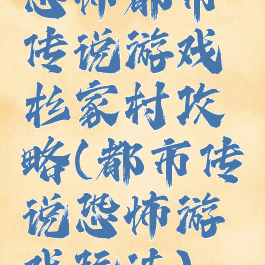 恐怖都市
传说游戏
杉家村攻
略(都市传
说恐怖游
戏玩法)